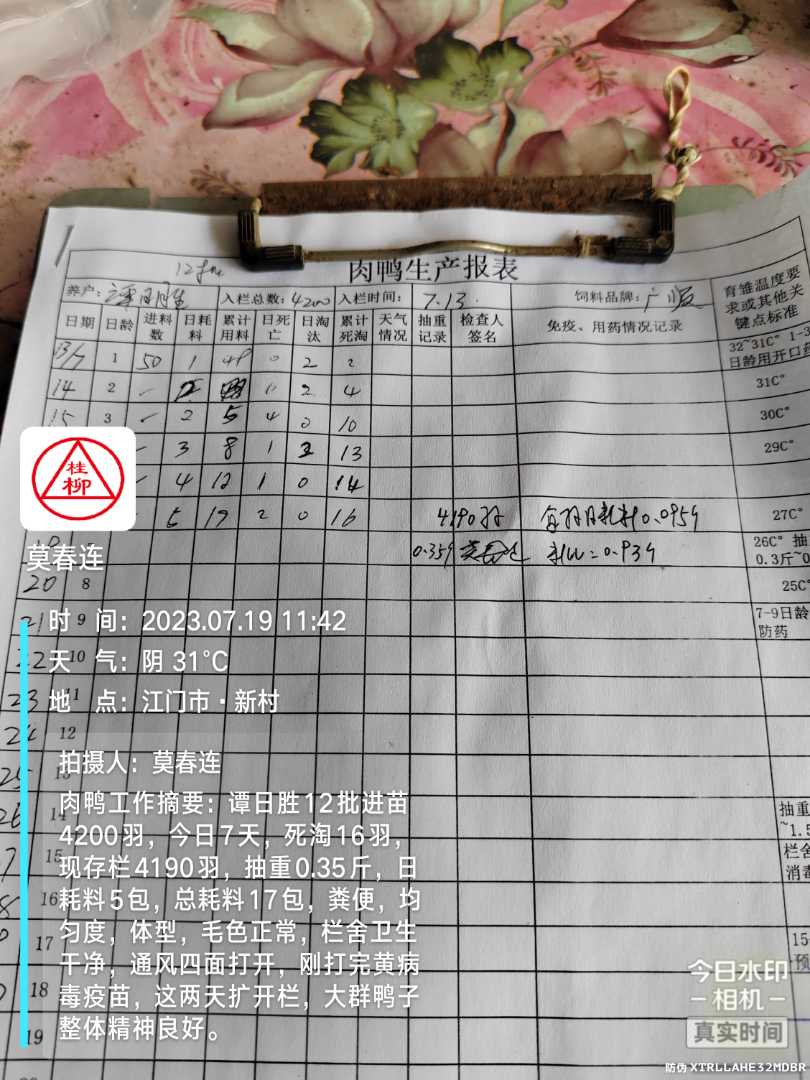 肉鸭生产报表
养户:
入栏总数: 4200 入栏时间: 7.13. 饲料品牌: 广顺
育雏温度要求或其他关键点标准
日期 日龄 进料数 日耗料 累计用料 日死亡 日淘汰 累计死淘 天气情况 抽重记录 检查人签名 免疫、用药情况记录
13/7 1 50 1 0 2 2 32~31C° 1-3
日龄用开口药
14 2 2 2 4 31C°
15 3 2 5 4 0 10 30C°
3 8 1 2 13 29C°
4 12 1 0 14
5 17 2 0 16 4190羽 27C°
0.35斤 26C° 抽
0.3斤~0
20 8 25C°
21 9 7-9日龄
防药
22 10
23 11
24 12
25 13
26 14 抽重
~1.5
15 栏舍
消毒
16
17 15
预
18
19
桂柳
莫春连
时 间: 2023.07.19 11:42
天 气: 阴 31℃
地 点: 江门市·新村
拍摄人: 莫春连
肉鸭工作摘要: 谭日胜12批进苗
4200羽, 今日7天, 死淘16羽,
现存栏4190羽, 抽重0.35斤, 日
耗料5包, 总耗料17包, 粪便, 均
匀度, 体型, 毛色正常, 栏舍卫生
干净, 通风四面打开, 刚打完黄病
毒疫苗, 这两天扩开栏, 大群鸭子
整体精神良好。
今日水印
相机
真实时间
防伪 XTRLLAHE32MDBR